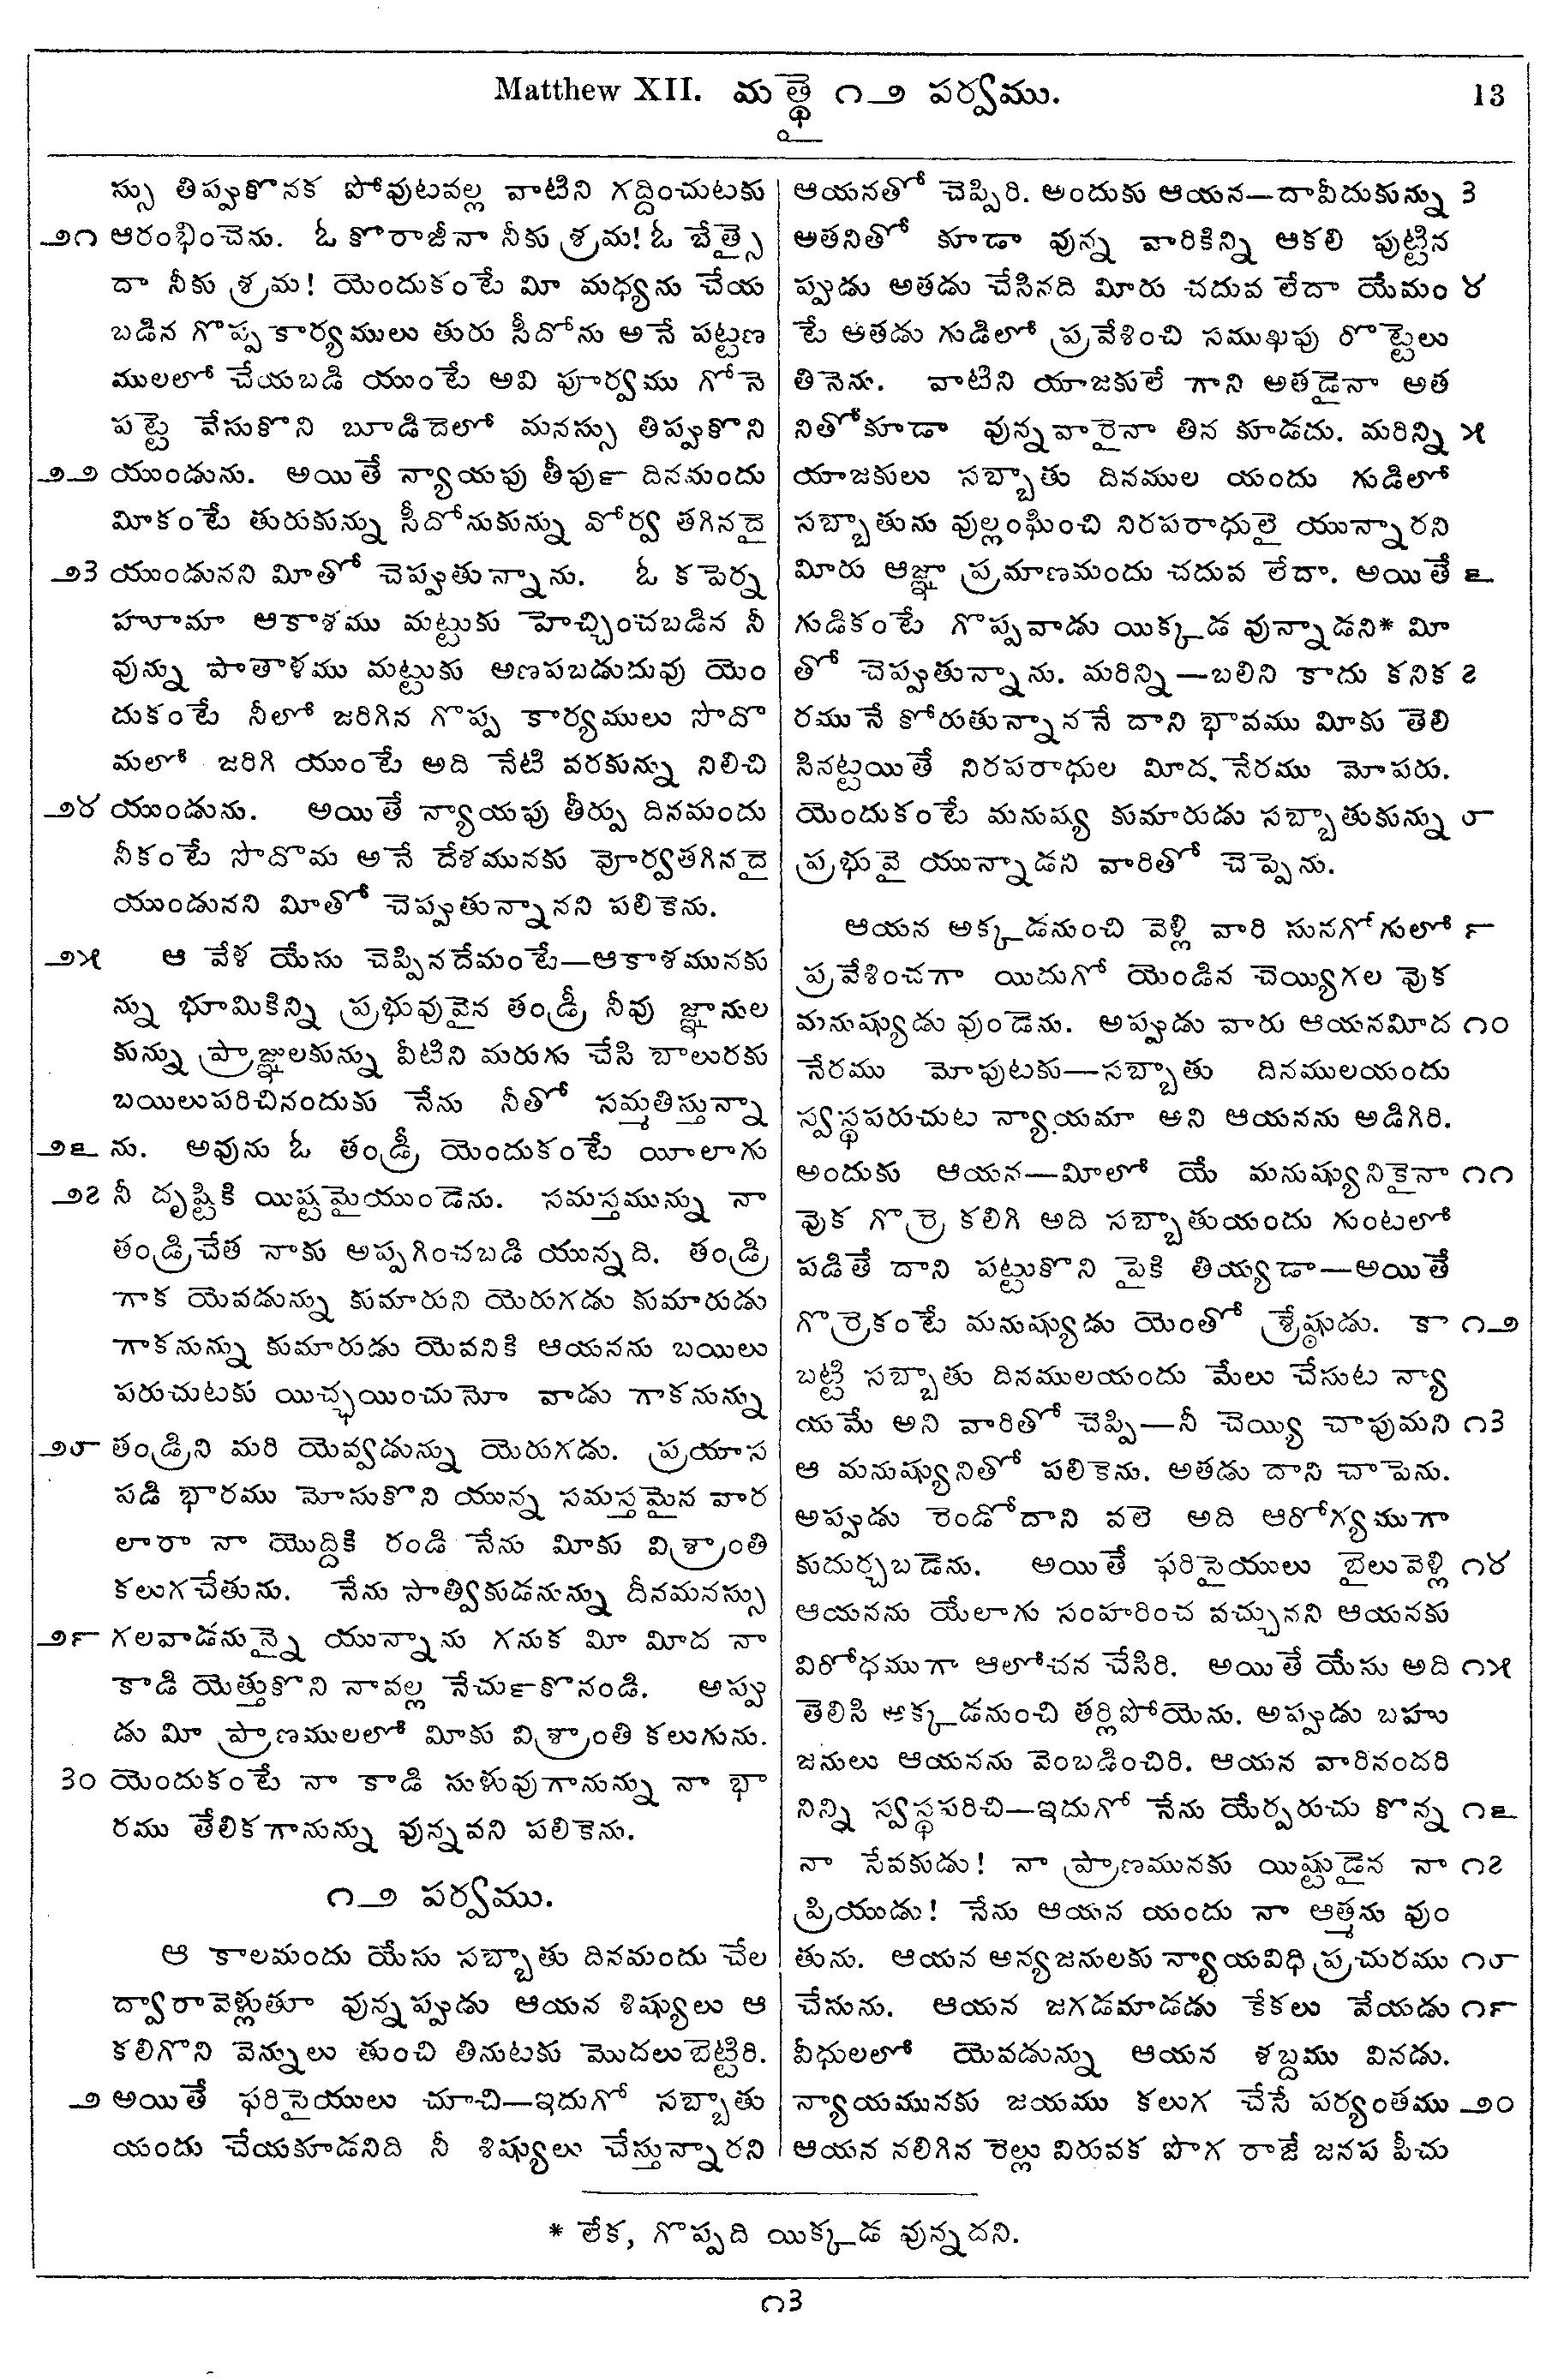 Matthew XII. మత్థై ౧౨ పర్వము. 13
స్సు తిప్పుకొనక పోవుటవల్ల వాటిని గద్దించుటకు
౨౧ ఆరంభించెను. ఓ కోరాజీనా నీకు శ్రమ! ఓ బేత్సై
దా నీకు శ్రమ! యెందుకంటే మీ మధ్యను చేయ
బడిన గొప్ప కార్యములు తురు సీదోను అనే పట్టణ
ములలో చేయబడి యుంటే అవి పూర్వము గోనె
పట్టె వేసుకొని బూడిదెలో మనస్సు తిప్పుకొని
౨౨ యుండును. అయితే న్యాయపు తీపుఁ దినమందు
మీకంటే తురుకున్ను సీదోనుకున్ను వోర్వ తగినదై
౨౩ యుండునని మీతో చెప్పుతున్నాను. ఓ కపెర్న
హూమా ఆకాశము మట్టుకు హెచ్చించబడిన నీ
వున్ను పాతాళము మట్టుకు అణపబడుదువు యెం
దుకంటే నీలో జరిగిన గొప్ప కార్యములు సొదొ
మలో జరిగి యుంటే అది నేటి వరకున్ను నిలిచి
౨౪ యుండును. అయితే న్యాయపు తీర్పు దినమందు
నీకంటే సొదొమ అనే దేశమునకు వోర్వతగినదై
యుండునని మీతో చెప్పుతున్నానని పలికెను.
౨౫ ఆ వేళ యేసు చెప్పినదేమంటే—ఆకాశమునకు
న్ను భూమికిన్ని ప్రభువువైన తండ్రీ నీవు జ్ఞానుల
కున్ను ప్రాజ్ఞులకున్ను వీటిని మరుగు చేసి బాలురకు
బయిలుపరిచినందుకు నేను నీతో సమ్మతిస్తున్నా
౨౬ ను. అవును ఓ తండ్రీ యెందుకంటే యీలాగు
౨౭ నీ దృష్టికి యిష్టమైయుండెను. సమస్తమున్ను నా
తండ్రిచేత నాకు అప్పగించబడి యున్నది. తండ్రి
గాక యెవడున్ను కుమారుని యెరుగడు కుమారుడు
గాకనున్ను కుమారుడు యెవనికి ఆయనను బయిలు
పరుచుటకు యిచ్ఛయించునో వాడు గాకనున్ను
౨౮ తండ్రిని మరి యెవ్వడున్ను యెరుగడు. ప్రయాస
పడి భారము మోసుకొని యున్న సమస్తమైన వార
లారా నా యొద్దికి రండి నేను మీకు విశ్రాంతి
కలుగచేతును. నేను సాత్వికుడనున్ను దీనమనస్సు
౨౯ గలవాడనున్నై యున్నాను గనుక మీ మీద నా
కాడి యెత్తుకొని నావల్ల నేచుఁకొనండి. అప్పు
డు మీ ప్రాణములలో మీకు విశ్రాంతి కలుగును.
౩౦ యెందుకంటే నా కాడి సుళువుగానున్ను నా భా
రము తేలికగానున్ను వున్నవని పలికెను.
౧౨ పర్వము.
ఆ కాలమందు యేసు సబ్బాతు దినమందు చేల
ద్వారావెళ్లుతూ వున్నప్పుడు ఆయన శిష్యులు ఆ
కలిగొని వెన్నులు తుంచి తినుటకు మొదలుబెట్టిరి.
౨ అయితే ఫరిసైయులు చూచి—ఇదుగో సబ్బాతు
యందు చేయకూడనిది నీ శిష్యులు చేస్తున్నారని
ఆయనతో చెప్పిరి. అందుకు ఆయన—దావీదుకున్ను ౩
అతనితో కూడా వున్న వారికిన్ని ఆకలి పుట్టిన
ప్పుడు అతడు చేసినది మీరు చదువ లేదా యేమం ౪
టే అతడు గుడిలో ప్రవేశించి సముఖపు రొట్టెలు
తినెను. వాటిని యాజకులే గాని అతడైనా అత
నితోకూడా వున్నవారైనా తిన కూడదు. మరిన్ని ౫
యాజకులు సబ్బాతు దినముల యందు గుడిలో
సబ్బాతును వుల్లంఘించి నిరపరాధులై యున్నారని
మీరు ఆజ్ఞా ప్రమాణమందు చదువ లేదా. అయితే ౬
గుడికంటే గొప్పవాడు యిక్కడ వున్నాడని* మీ
తో చెప్పుతున్నాను. మరిన్ని—బలిని కాదు కనిక ౭
రమునే కోరుతున్నాననే దాని భావము మీకు తెలి
సినట్టయితే నిరపరాధుల మీద నేరము మోపరు.
యెందుకంటే మనుష్య కుమారుడు సబ్బాతుకున్ను ౮
ప్రభువై యున్నాడని వారితో చెప్పెను.
ఆయన అక్కడనుంచి వెళ్లి వారి సునగోగులో ౯
ప్రవేశించగా యిదుగో యెండిన చెయ్యిగల వొక
మనుష్యుడు వుండెను. అప్పుడు వారు ఆయనమీద ౧౦
నేరము మోపుటకు—సబ్బాతు దినములయందు
స్వస్థపరుచుట న్యాయమా అని ఆయనను అడిగిరి.
అందుకు ఆయన—మీలో యే మనుష్యునికైనా ౧౧
వొక గొర్రె కలిగి అది సబ్బాతుయందు గుంటలో
పడితే దాని పట్టుకొని పైకి తియ్యడా—అయితే
గొర్రెకంటే మనుష్యుడు యెంతో శ్రేష్ఠుడు. కా ౧౨
బట్టి సబ్బాతు దినములయందు మేలు చేసుట న్యా
యమే అని వారితో చెప్పి—నీ చెయ్యి చాపుమని ౧౩
ఆ మనుష్యునితో పలికెను. అతడు దాని చాపెను.
అప్పుడు రెండోదాని వలె అది ఆరోగ్యముగా
కుదుర్చబడెను. అయితే ఫరిసైయులు బైలువెళ్లి ౧౪
ఆయనను యేలాగు సంహరించ వచ్చునని ఆయనకు
విరోధముగా ఆలోచన చేసిరి. అయితే యేసు అది ౧౫
తెలిసి అక్కడనుంచి తర్లిపోయెను. అప్పుడు బహు
జనులు ఆయనను వెంబడించిరి. ఆయన వారినందరి
నిన్ని స్వస్థపరిచి—ఇదుగో నేను యేర్పరుచు కొన్న ౧౬
నా సేవకుడు! నా ప్రాణమునకు యిష్టుడైన నా ౧౭
ప్రియుడు! నేను ఆయన యందు నా ఆత్మను వుం
తును. ఆయన అన్యజనులకు న్యాయవిధి ప్రచురము ౧౮
చేసును. ఆయన జగడమాడడు కేకలు వేయడు ౧౯
వీధులలో యెవడున్ను ఆయన శబ్దము వినడు.
న్యాయమునకు జయము కలుగ చేసే పర్యంతము ౨౦
ఆయన నలిగిన రెల్లు విరువక పొగ రాజే జనప పీచు
* లేక, గొప్పది యిక్కడ వున్నదని.
౧౩